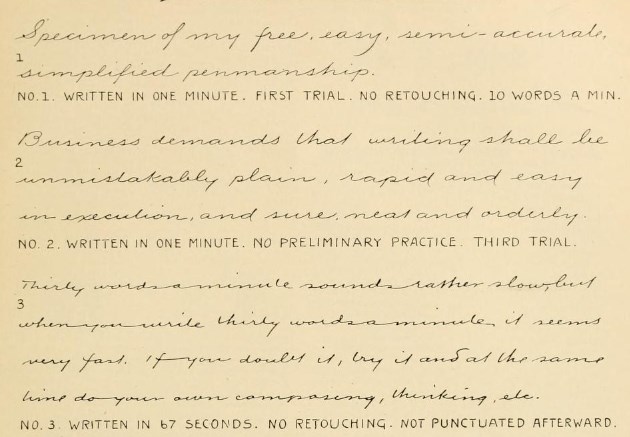 Specimen of my free, easy, semi-accurate,
1
simplified penmanship.
NO. 1. WRITTEN IN ONE MINUTE. FIRST TRIAL. NO RETOUCHING. 10 WORDS A MIN.
Business demands that writing shall be
2
unmistakably plain, rapid and easy
in execution, and sure, neat and orderly.
NO. 2. WRITTEN IN ONE MINUTE. NO PRELIMINARY PRACTICE. THIRD TRIAL.
Thirty words a minute sounds rather slow, but
3
when you write thirty words a minute, it seems
very fast. If you doubt it, try it and at the same
time do your own composing, thinking, etc.
NO. 3. WRITTEN IN 67 SECONDS. NO RETOUCHING. NOT PUNCTUATED AFTERWARD.